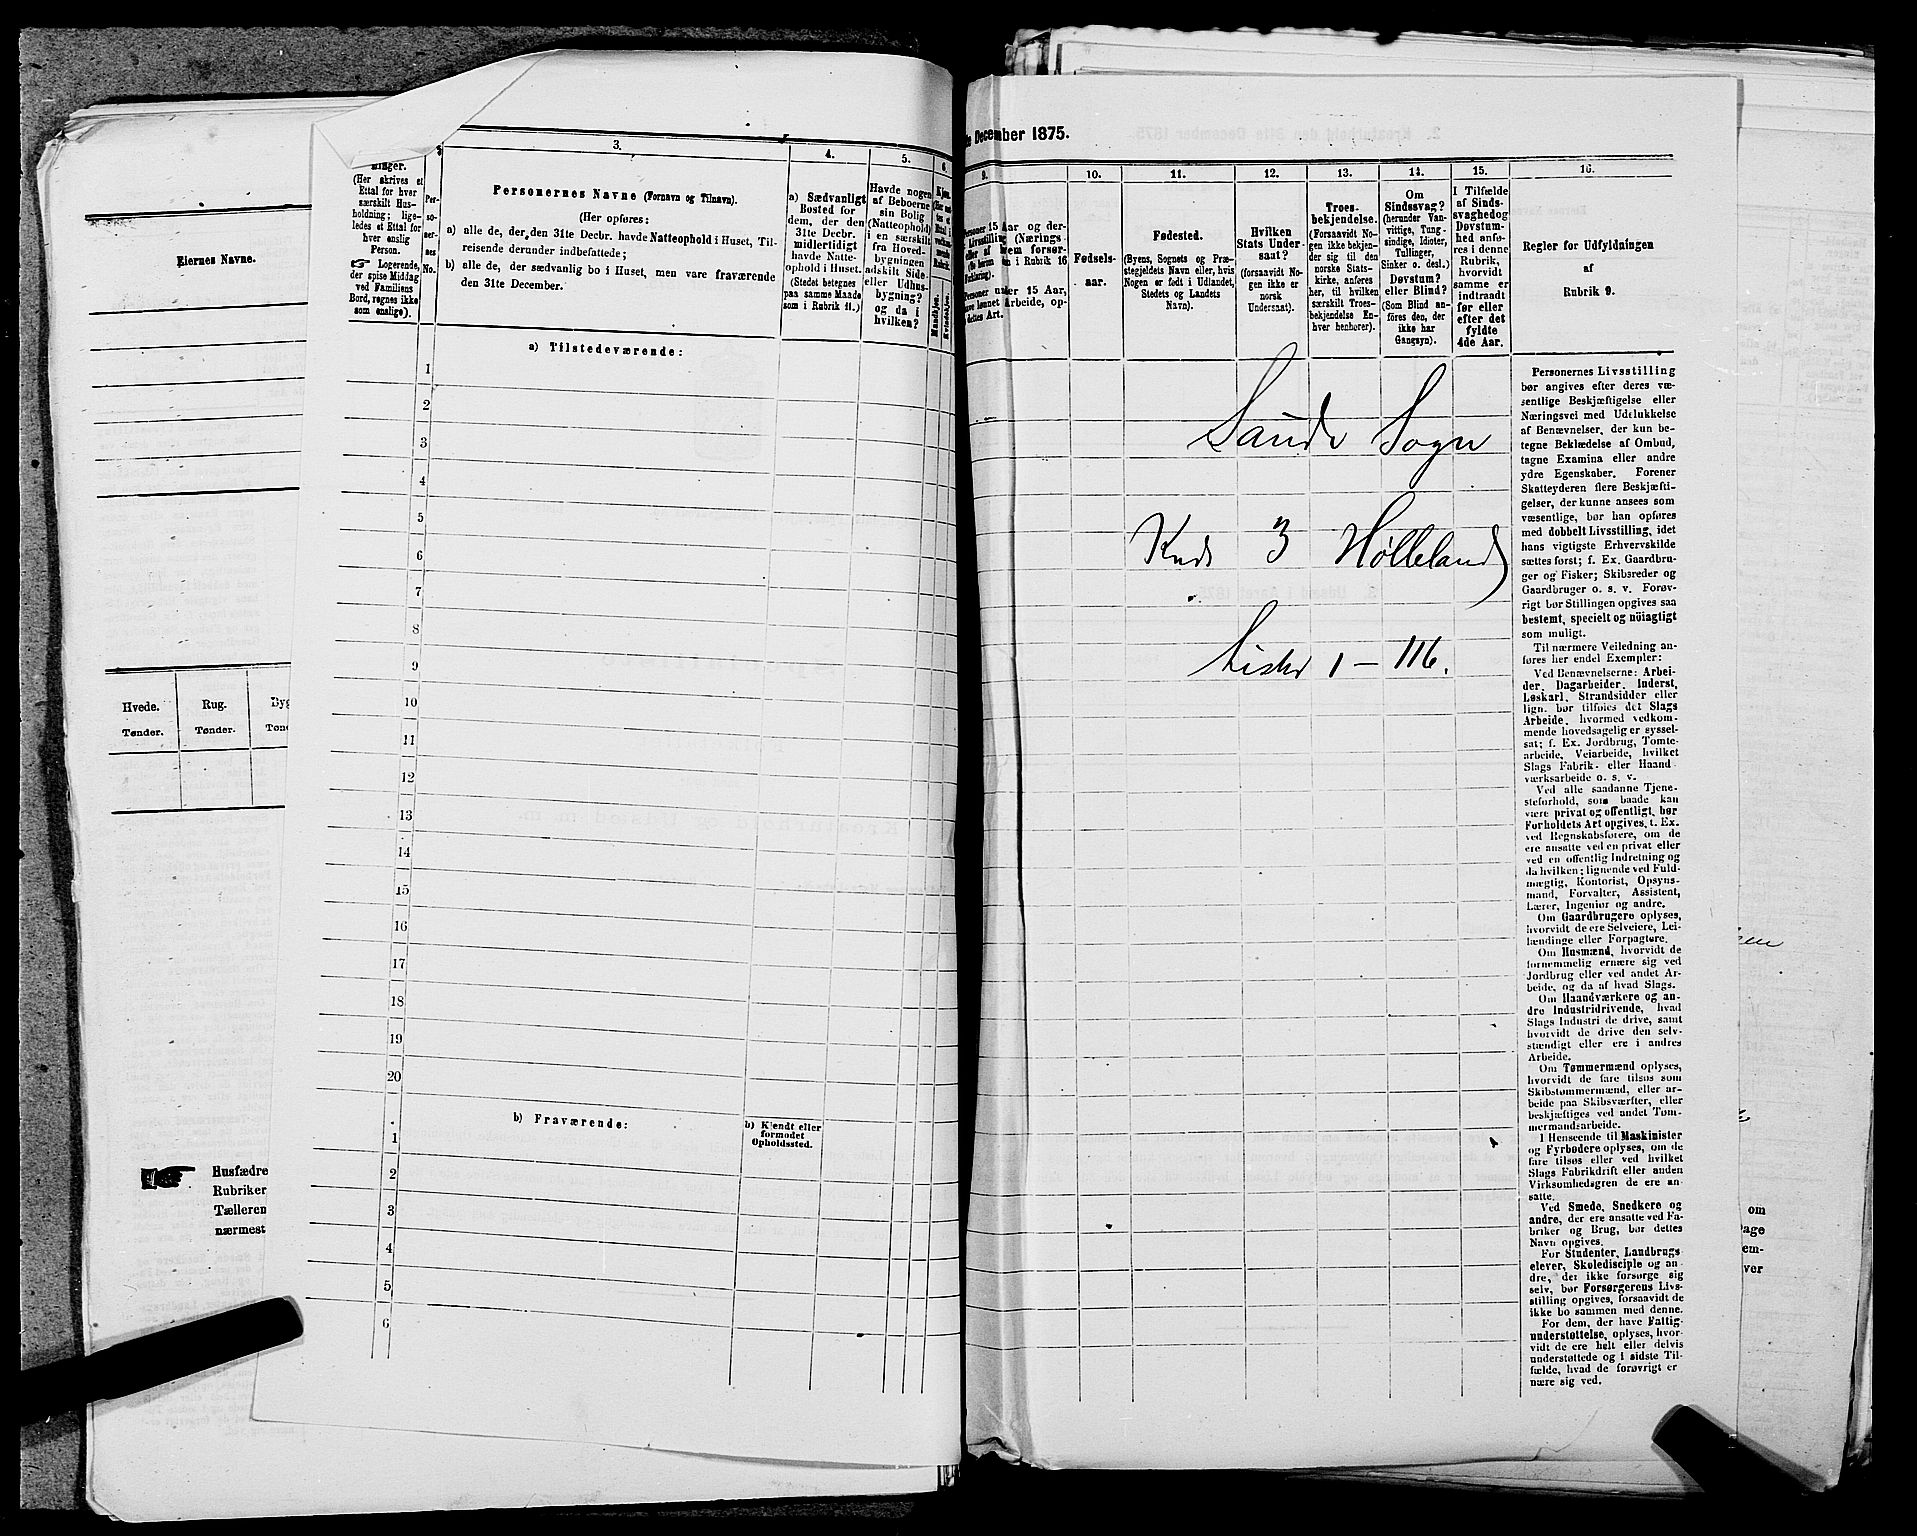 Eiernes Navne.
Hvede. Rug. Byg
Tønder. Tønder. Tønd
Husfædre
Rubriker
Tælleren
nærmest
ninger.
(Her skrives et
Ettal for hver
særskilt Hus-
holdning; lige-
ledes et Ettal for
hver enslig
Person.
☞ Logerende,
der spise Middag
ved Familiens
Bord, regnes ikke
som enslige).
Per-
so-
ner-
nes
No.
3.
Personernes Navne (Fornavn og Tilnavn).
(Her opføres:
a) alle de, der den 31te Decbr. havde Natteophold i Huset, Til-
reisende derunder indbefattede;
b) alle de, der sædvanlig bo i Huset, men vare fraværende
den 31te December.
4.
a) Sædvanligt
Bosted for
dem, der den
31te Decbr.
midlertidigt
havde Natte-
ophold i Huset.
(Stedet betegnes
paa samme Maade
som i Rubrik 11.)
5.
Havde nogen
af Beboerne
sin Bolig
(Natteophold)
i en særskilt
fra Hoved-
bygningen
adskilt Side-
eller Udhus-
bygning?
og da i
hvilken?
6.
Kjøn.
Mandkjøn.
Kvindekjøn.
a) Tilstedeværende:
1
2
3
4
5
6
7
8
9
10
11
12
13
14
15
16
17
18
19
20
b) Fraværende:
b) Kjendt eller
formodet
Opholdssted.
1
2
3
4
5
6
te December 1875.
9.
Personer 15 Aar og der-
10.
Fødsels-
aar.
11.
Fødested.
(Byens, Sognets og Præ-
stegjeldets Navn eller, hvis
Nogen er født i Udlandet,
Stedets og Landets
Navn).
12.
Hvilken
Stats Under-
saat?
(forsaavidt No-
gen ikke er
norsk
Undersaat).
13.
Troes-
bekjendelse.
(Forsaavidt No-
gen ikke bekjen-
der sig til den
norske Stats-
kirke, anføres
her, til hvilken
særskilt Troes-
bekjendelse En-
hver henhører).
14.
Om
Sindssvag?
(herunder Van-
vittige, Tung-
sindige, Idioter,
Tullinger,
Sinker o. desl.)
Døvstum?
eller Blind?
(Som Blind an-
føres den, der
ikke har
Gangsyn).
15.
I Tilfælde
af Sinds-
svaghed og
Døvstum-
hed anfø-
res i denne
Rubrik,
hvorvidt
samme er
indtraadt
før eller
efter det
fyldte
4de Aar.
16.
Regler for Udfyldningen
af
Rubrik 9.
Saude Sogn
Kreds 3 Hølleland
Lister 1 - 116.
Personernes Livsstilling
bør angives efter deres væ-
sentlige Beskjæftigelse eller
Næringsvei med Udelukkelse
af Benævnelser, der kun be-
tegne Beklædelse af Ombud,
tagne Examina eller andre
ydre Egenskaber. Forener
Skatteyderen flere Beskjæfti-
gelser, der kunne ansees som
væsentlige, bør han opføres
med dobbelt Livsstilling, idet
hans vigtigste Erhvervskilde
sættes først; f. Ex. Gaardbru-
ger og Fisker; Skibsreder og
Gaardbruger o. s. v. Forøv-
rigt bør Stillingen opgives saa
bestemt, specielt og nöiagtigt
som muligt.
Til nærmere Veiledning an-
føres her endel Exempler:
Ved Benævnelserne: Arbei-
der, Dagarbeider, Inderst,
Løskarl, Strandsidder eller
lign. bør tilføies det Slags
Arbeide, hvormed vedkom-
mende hovedsagelig er syssel-
sat; f. Ex. Jordbrug, Tomte-
arbeide, Veiarbeide, hvilket
Slags Fabrik- eller Haand
værksarbeide o. s. v.
Ved alle saadanne Tjene-
steforhold, som baade kan
være privat og offentligt, bør
Forholdets Art opgives, t. Ex.
ved Regnskabsførere, om de
ere ansatte ved en privat eller
ved en offentlig Indretning og
da hvilken; lignende ved Fuld-
mægtig, Kontorist, Opsyns-
mand, Forvalter, Assistent,
Lærer, Ingeniør og andre.
Om Gaardbrugere oplyses,
hvorvidt de ere Selveiere, Lei-
lændinge eller Forpagtere.
Om Husmænd, hvorvidt de
fornemmelig ernære sig ved
Jordbrug eller ved andet Ar-
beide, og da af hvad Slags.
Om Haandværkere og an-
dre Industridrivende, hvad
Slags Industri de drive, samt
hvorvidt de drive den selv-
stændigt eller ere i andres
Arbeide.
Om Tømmermænd oplyses,
hvorvidt de fare tilsøs som
Skibstømmermænd, eller ar-
beide paa Skibsværfter, eller
beskjæftiges ved andet Tøm-
mermandsarbeide.
I Henseende til Maskinister
og Fyrbødere oplyses, om de
fare tilsøs eller ved hvilket
Slags Fabrikdrift eller anden
Virksomhedsgren de ere an-
satte.
Ved Smede, Snedkere og
andre, der ere ansatte ved Fa-
briker og Brug, bør dettes
Navn opgives.
For Studenter, Landbrugs
elever, Skoledisciple og an-
dre, der ikke forsørge sig
selv, bør Forsørgerens Livs-
stilling opgives, forsaavidt de
ikke bo sammen med denne.
For dem, der have Fattig-
understøttelse, oplyses, hvor-
vidt de ere helt eller delvis
understøttede og i sidste Til-
fælde, hvad de forøvrigt er
nære sig ved.
om
Page
em-
ver